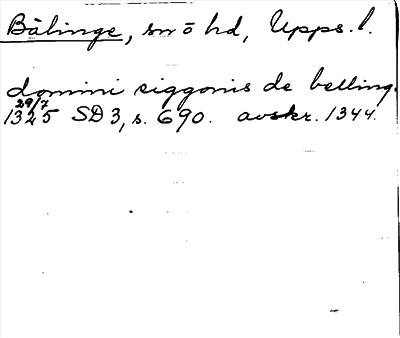 Bälinge, sn o hd, Upps. l.
domini siggonis de belling.
29/7
1325 SD 3, s. 690. avskr. 1344.